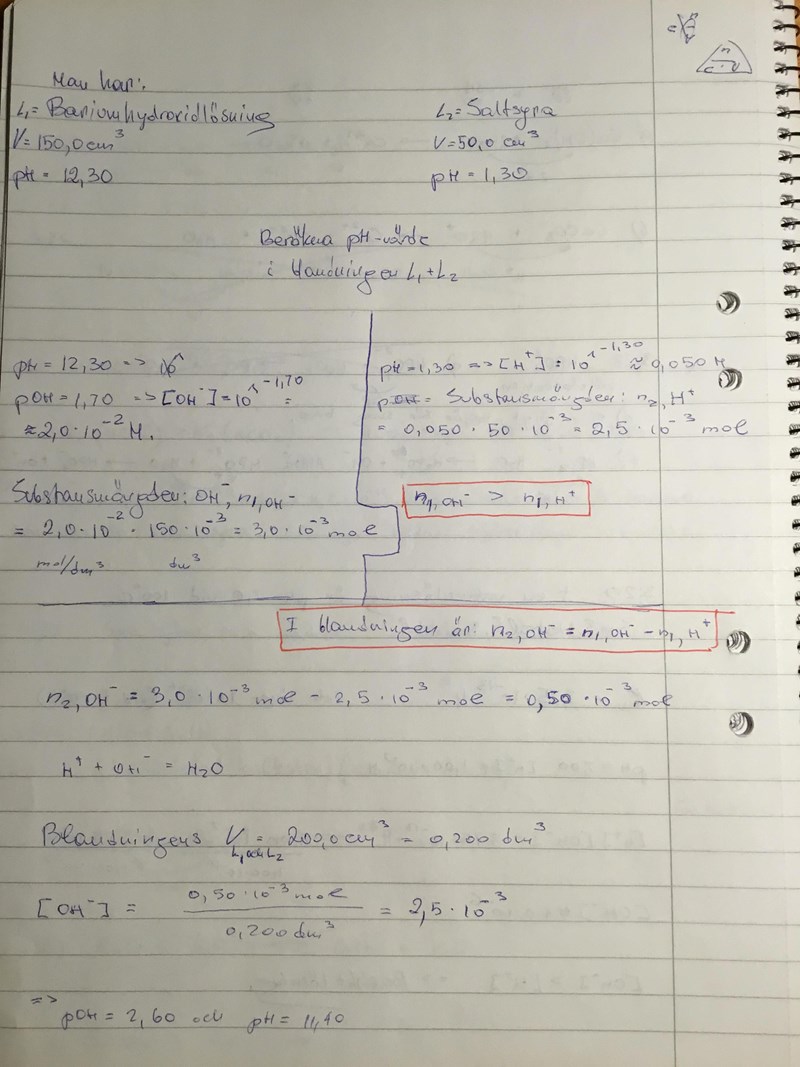 n
c · v
Man har:
L₁ = Bariumhydroxidlösning
V = 150,0 cm³
pH = 12,30
L₂ = Saltsyra
V = 50,0 cm³
pH = 1,30
Beräkna pH-värde
i blandningen L₁ + L₂
pH = 12,30 =>
pOH = 1,70 => [OH⁻] = 10^-1,70 =
≈ 2,0 · 10⁻² M.
Substansmängden: OH⁻, n₁,OH⁻
= 2,0 · 10⁻² · 150 · 10⁻³ = 3,0 · 10⁻³ mol
mol/dm³ dm³
pH = 1,30 => [H⁺] = 10^-1,30 ≈ 0,050 M
Substansmängden: n₂,H⁺
= 0,050 · 50 · 10⁻³ = 2,5 · 10⁻³ mol
n₁,OH⁻ > n₁,H⁺
I blandningen är: n₂,OH⁻ = n₁,OH⁻ − n₁,H⁺
n₂,OH⁻ = 3,0 · 10⁻³ mol − 2,5 · 10⁻³ mol = 0,50 · 10⁻³ mol
H⁺ + OH⁻ = H₂O
Blandningens V = 200,0 cm³ = 0,200 dm³
L₁ och L₂
[OH⁻] = 0,50 · 10⁻³ mol / 0,200 dm³ = 2,5 · 10⁻³
=> pOH = 2,60 och pH = 11,40